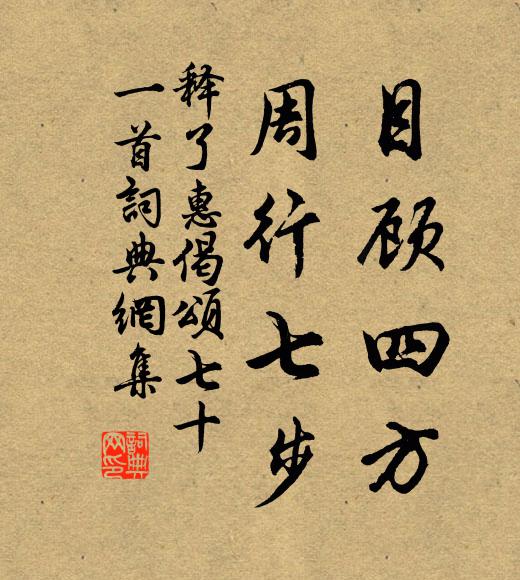 目顾四方
周行七步
释了惠偈颂七十
一首詞典網集
詞典网印